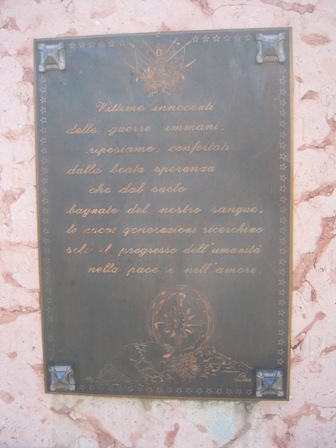 Vittime innocenti
delle guerre immani,
riposiamo, confortati
dalla beata speranza
che dal suolo
bagnato del nostro sangue,
le nuove generazioni ricerchino
solo il progresso dell'umanità
nella pace e nell'amore.